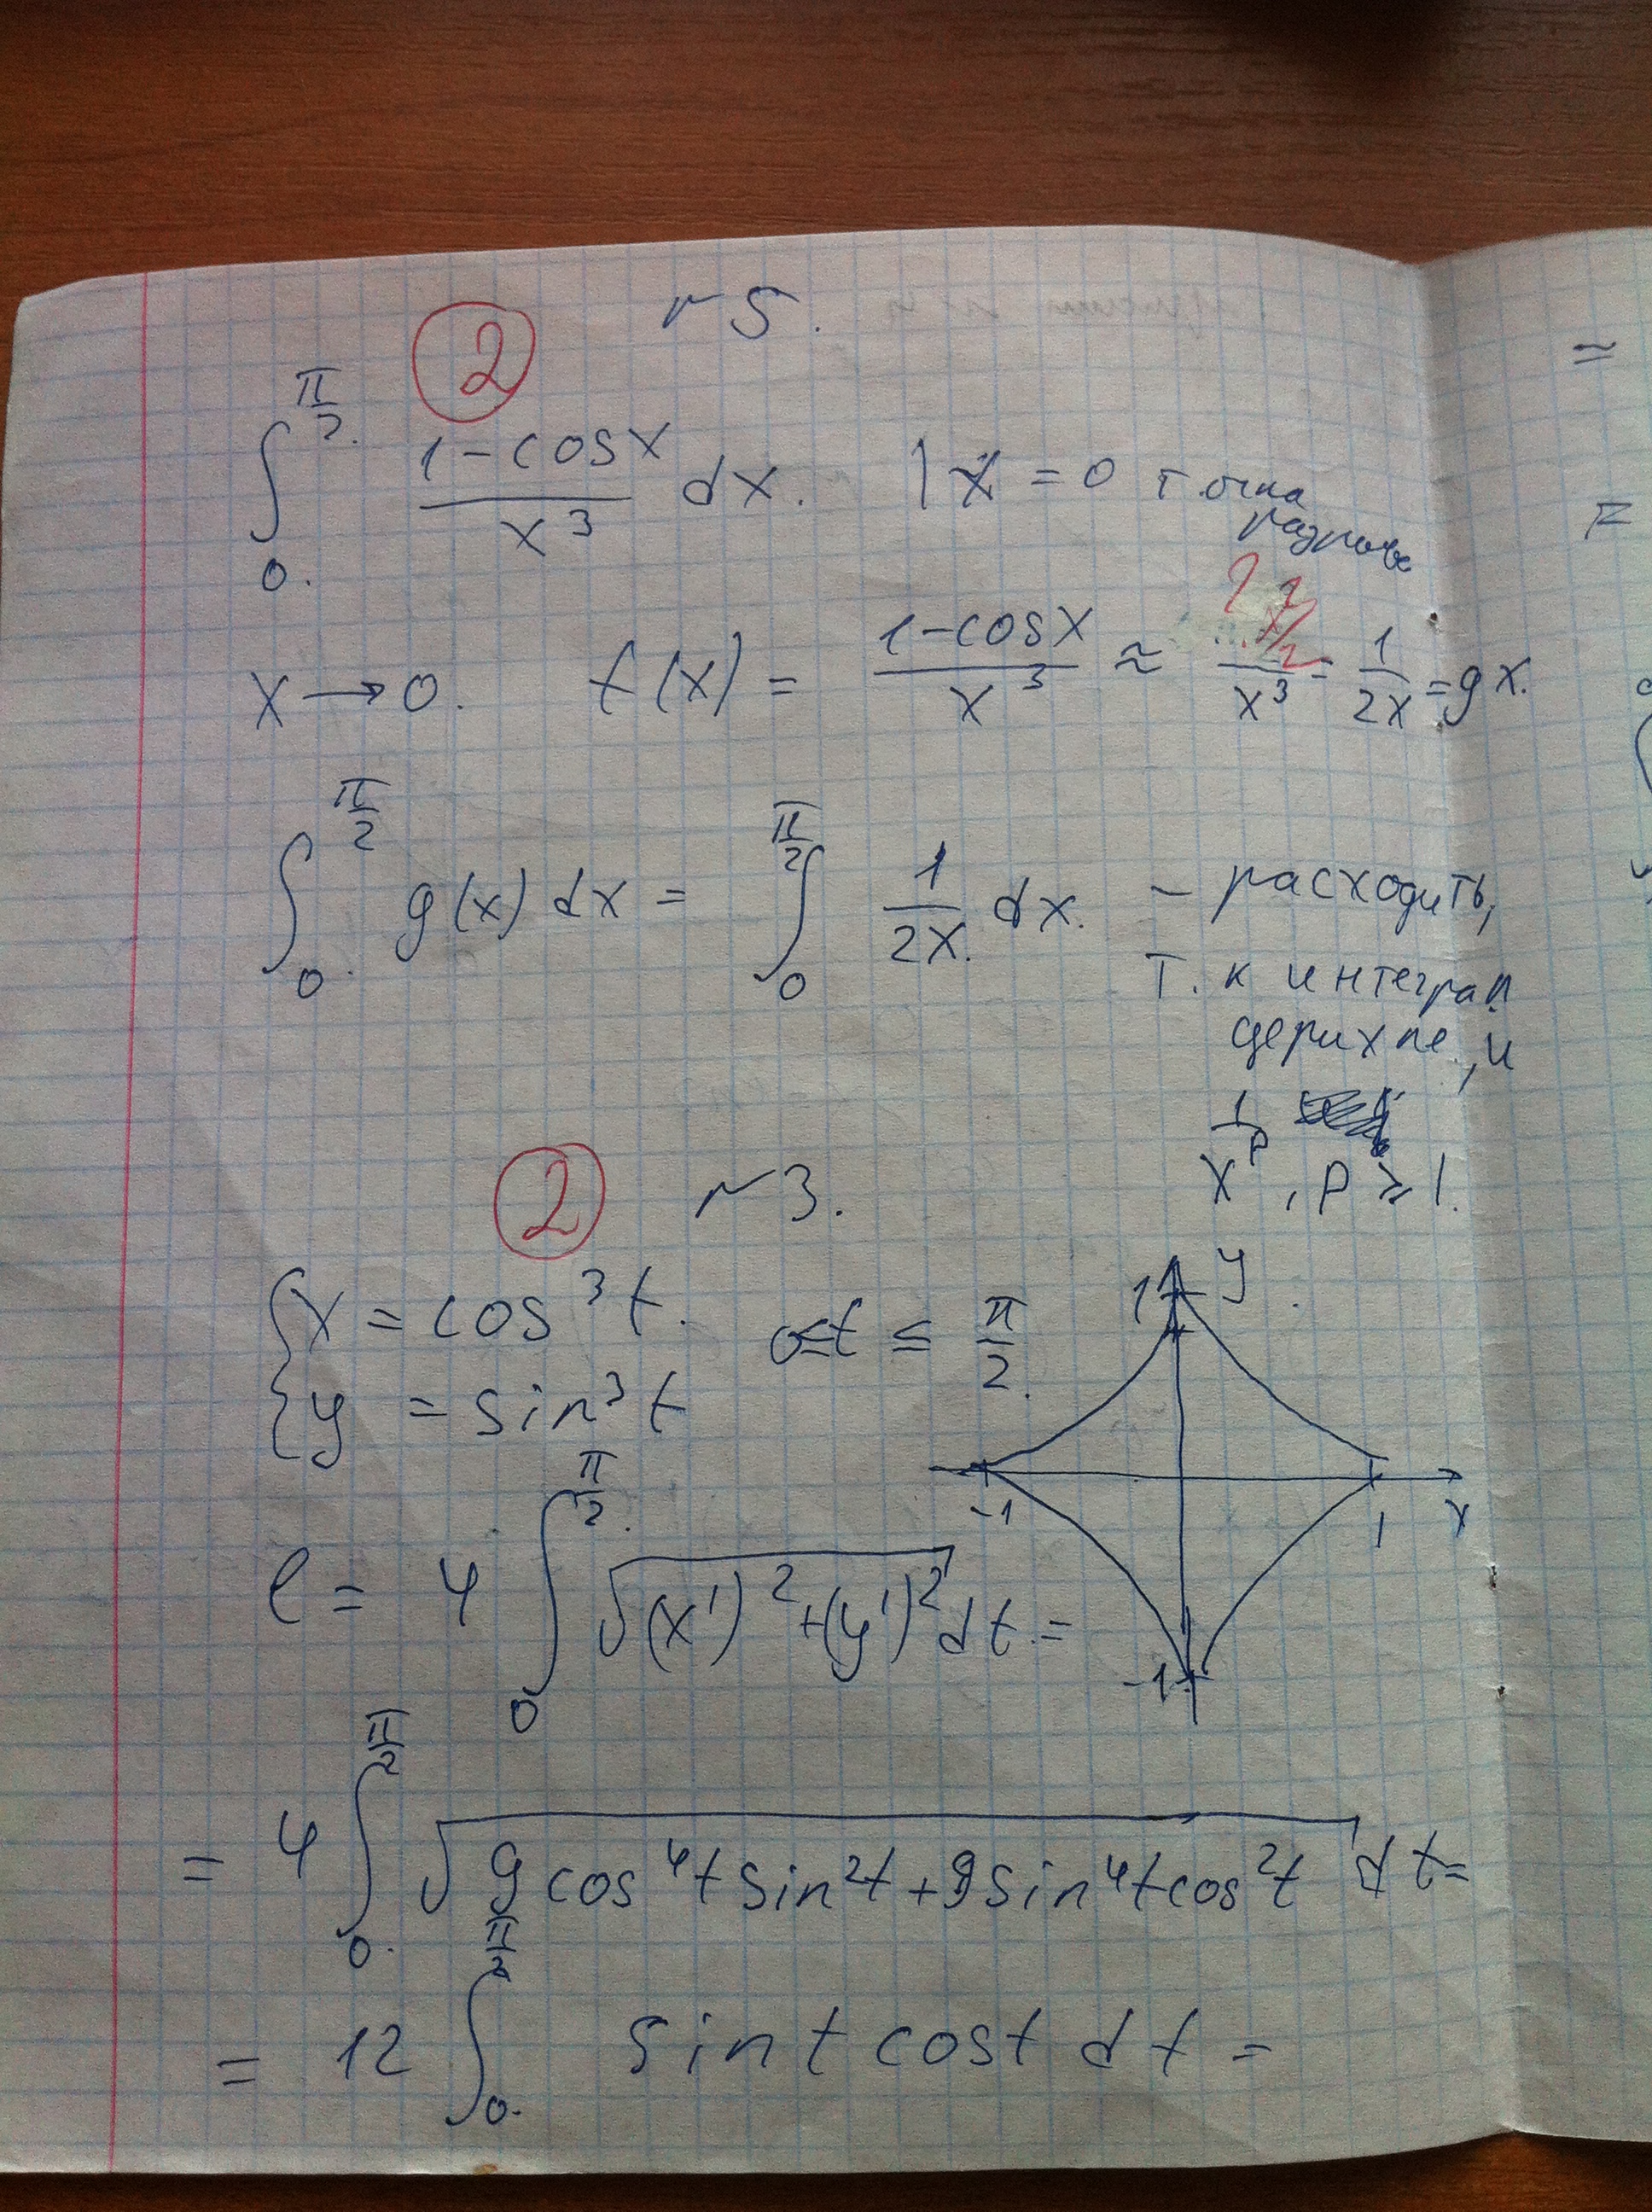 ② ~ 5.
∫₀^{π/2} (1-cosx)/x³ dx. | x = 0 точка
разрыва
x → 0. f(x) = (1-cosx)/x³ ≈ /x³ = 1/2x = gx.
∫₀^{π/2} g(x) dx = ∫₀^{π/2} 1/2x dx. – расходить,
т. к интеграл
дерихле, и
1/x^p, p ≥ 1.
② ~ 3.
{x = cos³t. 0≤t ≤ π/2.
{y = sin³t
1 y
-1 1 x
-1
l = 4 ∫₀^{π/2} √((x')² + (y')²) dt =
= 4 ∫₀^{π/2} √(9cos⁴t sin²t + 9sin⁴t cos²t) dt =
= 12 ∫₀^{π/2} sint cost dt =